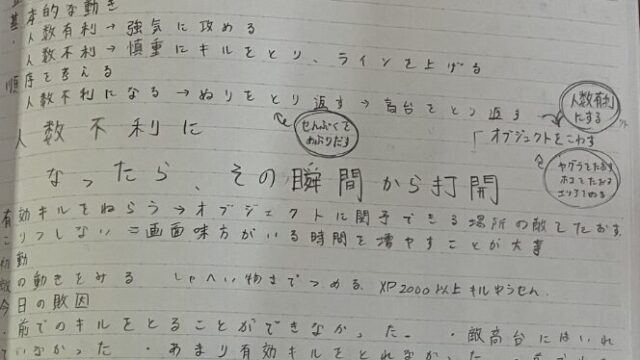 基本的な動き
人数有利→強気に攻める
人数不利→慎重にキルをとり、ラインを上げる
順序を考える
人数不利になる→ぬりをとり返す→高台をとり返す→
人数有利にする
せんぷくをあぶりだす
「オブジェクトをこわす
ヤグラをたおす
ホコをたおす
人数不利に
なったら、その瞬間から打開
有効キルをねらう→オブジェクトに関与できる場所の敵をたおす
しない=画面味方がいる時間を増やすことが大事
の動きをみる しゃへい物までつめる XP2000以上キルゆうせん
今日の敗因
前でのキルをとることができなかった ・敵高台にはいれ
ていなかった ・あまり有効キルをとれなかった